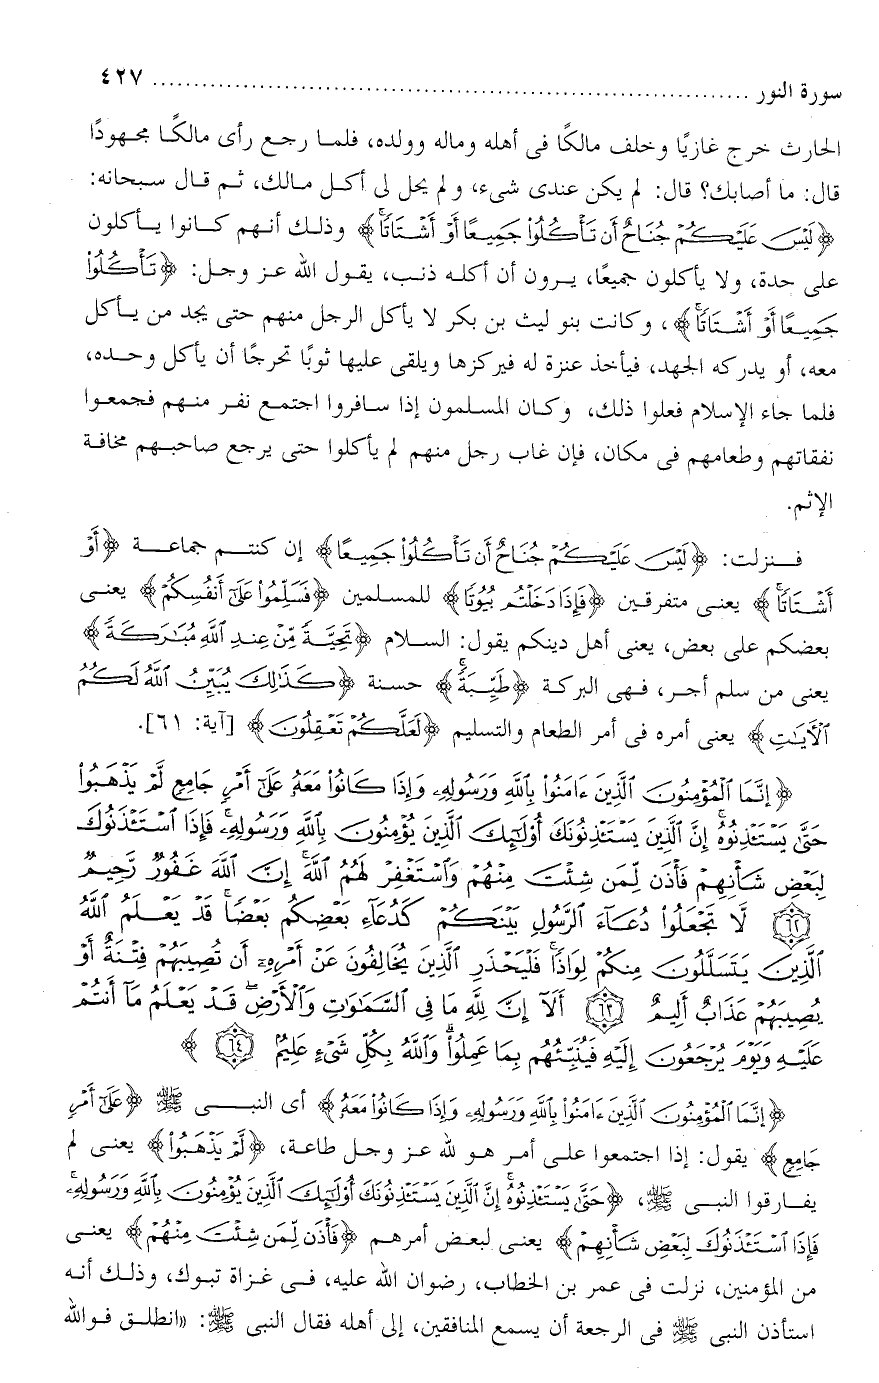 سورة النور ........................................................................ ٤٢٧
الحارث خرج غازيًا وخلف مالكًا فى أهله وماله وولده، فلما رجع رأى مالكًا مجهودًا
قال: ما أصابك؟ قال: لم يكن عندى شىء، ولم يحل لى أكل مالك، ثم قال سبحانه:
﴿لَيْسَ عَلَيْكُمْ جُنَاحٌ أَن تَأْكُلُوا۟ جَمِيعًا أَوْ أَشْتَاتًاۚ﴾ وذلك أنهم كانوا يأكلون
على حدة، ولا يأكلون جميعًا، يرون أن أكله ذنب، يقول الله عز وجل: ﴿تَأْكُلُوا۟
جَمِيعًا أَوْ أَشْتَاتًاۚ﴾، وكانت بنو ليث بن بكر لا يأكل الرجل منهم حتى يجد من يأكل
معه، أو يدركه الجهد، فيأخذ عنزة له فيركزها ويلقى عليها ثوبًا تحرجًا أن يأكل وحده،
فلما جاء الإسلام فعلوا ذلك، وكان المسلمون إذا سافروا اجتمع نفر منهم فجمعوا
نفقاتهم وطعامهم فى مكان، فإن غاب رجل منهم لم يأكلوا حتى يرجع صاحبهم مخافة
الإثم.
فنزلت: ﴿لَيْسَ عَلَيْكُمْ جُنَاحٌ أَن تَأْكُلُوا۟ جَمِيعًا﴾ إن كنتم جماعة ﴿أَوْ
أَشْتَاتًاۚ﴾ يعنى متفرقين ﴿فَإِذَا دَخَلْتُم بُيُوتًا﴾ للمسلمين ﴿فَسَلِّمُوا۟ عَلَىٰٓ أَنفُسِكُمْ﴾ يعنى
بعضكم على بعض، يعنى أهل دينكم يقول: السلام ﴿تَحِيَّةً مِّنْ عِندِ ٱللَّهِ مُبَٰرَكَةً﴾
يعنى من سلم أجر، فهى البركة ﴿طَيِّبَةًۚ﴾ حسنة ﴿كَذَٰلِكَ يُبَيِّنُ ٱللَّهُ لَكُمُ
ٱلْأَيَٰتِ﴾ يعنى أمره فى أمر الطعام والتسليم ﴿لَعَلَّكُمْ تَعْقِلُونَ﴾ [آية: ٦١].
﴿إِنَّمَا ٱلْمُؤْمِنُونَ ٱلَّذِينَ ءَامَنُوا۟ بِٱللَّهِ وَرَسُولِهِۦ وَإِذَا كَانُوا۟ مَعَهُۥ عَلَىٰٓ أَمْرٍ جَامِعٍ لَّمْ يَذْهَبُوا۟
حَتَّىٰ يَسْتَـْٔذِنُوهُۚ إِنَّ ٱلَّذِينَ يَسْتَـْٔذِنُونَكَ أُو۟لَٰٓئِكَ ٱلَّذِينَ يُؤْمِنُونَ بِٱللَّهِ وَرَسُولِهِۦۚ فَإِذَا ٱسْتَـْٔذَنُوكَ
لِبَعْضِ شَأْنِهِمْ فَأْذَن لِّمَن شِئْتَ مِنْهُمْ وَٱسْتَغْفِرْ لَهُمُ ٱللَّهَۚ إِنَّ ٱللَّهَ غَفُورٌ رَّحِيمٌ
(٦٢) لَّا تَجْعَلُوا۟ دُعَآءَ ٱلرَّسُولِ بَيْنَكُمْ كَدُعَآءِ بَعْضِكُم بَعْضًاۚ قَدْ يَعْلَمُ ٱللَّهُ
ٱلَّذِينَ يَتَسَلَّلُونَ مِنكُمْ لِوَاذًاۚ فَلْيَحْذَرِ ٱلَّذِينَ يُخَالِفُونَ عَنْ أَمْرِهِۦٓ أَن تُصِيبَهُمْ فِتْنَةٌ أَوْ
يُصِيبَهُمْ عَذَابٌ أَلِيمٌ (٦٣) أَلَآ إِنَّ لِلَّهِ مَا فِى ٱلسَّمَٰوَٰتِ وَٱلْأَرْضِۖ قَدْ يَعْلَمُ مَآ أَنتُمْ
عَلَيْهِ وَيَوْمَ يُرْجَعُونَ إِلَيْهِ فَيُنَبِّئُهُم بِمَا عَمِلُوا۟ۗ وَٱللَّهُ بِكُلِّ شَىْءٍ عَلِيمٌۢ (٦٤)﴾
﴿إِنَّمَا ٱلْمُؤْمِنُونَ ٱلَّذِينَ ءَامَنُوا۟ بِٱللَّهِ وَرَسُولِهِۦ وَإِذَا كَانُوا۟ مَعَهُۥ﴾ أى النبى ﷺ ﴿عَلَىٰٓ أَمْرٍ
جَامِعٍ﴾ يقول: إذا اجتمعوا على أمر هو لله عز وجل طاعة، ﴿لَّمْ يَذْهَبُوا۟﴾ يعنى لم
يفارقوا النبى ﷺ، ﴿حَتَّىٰ يَسْتَـْٔذِنُوهُۚ إِنَّ ٱلَّذِينَ يَسْتَـْٔذِنُونَكَ أُو۟لَٰٓئِكَ ٱلَّذِينَ يُؤْمِنُونَ بِٱللَّهِ وَرَسُولِهِۦۚ
فَإِذَا ٱسْتَـْٔذَنُوكَ لِبَعْضِ شَأْنِهِمْ﴾ يعنى لبعض أمرهم ﴿فَأْذَن لِّمَن شِئْتَ مِنْهُمْ﴾ يعنى
من المؤمنين، نزلت فى عمر بن الخطاب، رضوان الله عليه، فى غزاة تبوك، وذلك أنه
استأذن النبى ﷺ فى الرجعة أن يسمع المنافقين، إلى أهله فقال النبى ﷺ: «انطلق فوالله